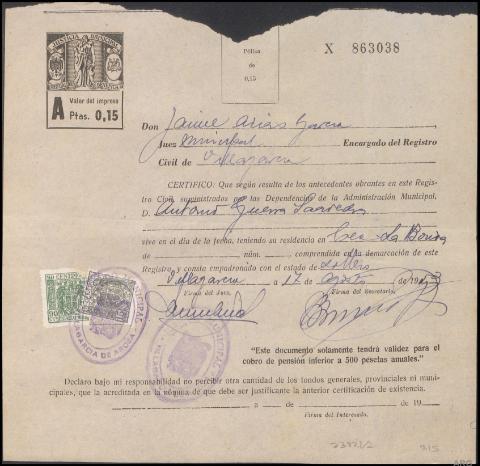 JUSTICIA MUNICIPAL
A Valor del impreso
Ptas. 0,15
Póliza
de
0,15
X 863038
Don Jaime Arias Garcia
Juez Municipal Encargado del Registro
Civil de Villagarcia
CERTIFICO: Que según resulta de los antecedentes obrantes en este Regis-
tro Civil, suministrados por las Dependencias de la Administración Municipal,
D. Antonio Guerra Saavedra
vive en el día de la fecha, teniendo su residencia en Crea-La
de núm. comprendida en la demarcación de este
Registro, y consta empadronado con el estado de soltero
Villagarcia a 17 de Agosto de 19
Firma del Juez. Firma del Secretario.
90 CENTS
VILLAGARCIA DE AROSA
"Este documento solamente tendrá validez para el
cobro de pensión inferior a 500 pesetas anuales."
Declaro bajo mi responsabilidad no percibir otra cantidad de los fondos generales, provinciales ni muni-
cipales, que la acreditada en la nómina de que debe ser justificante la anterior certificación de existencia.
a de de 19
Firma del Interesado.